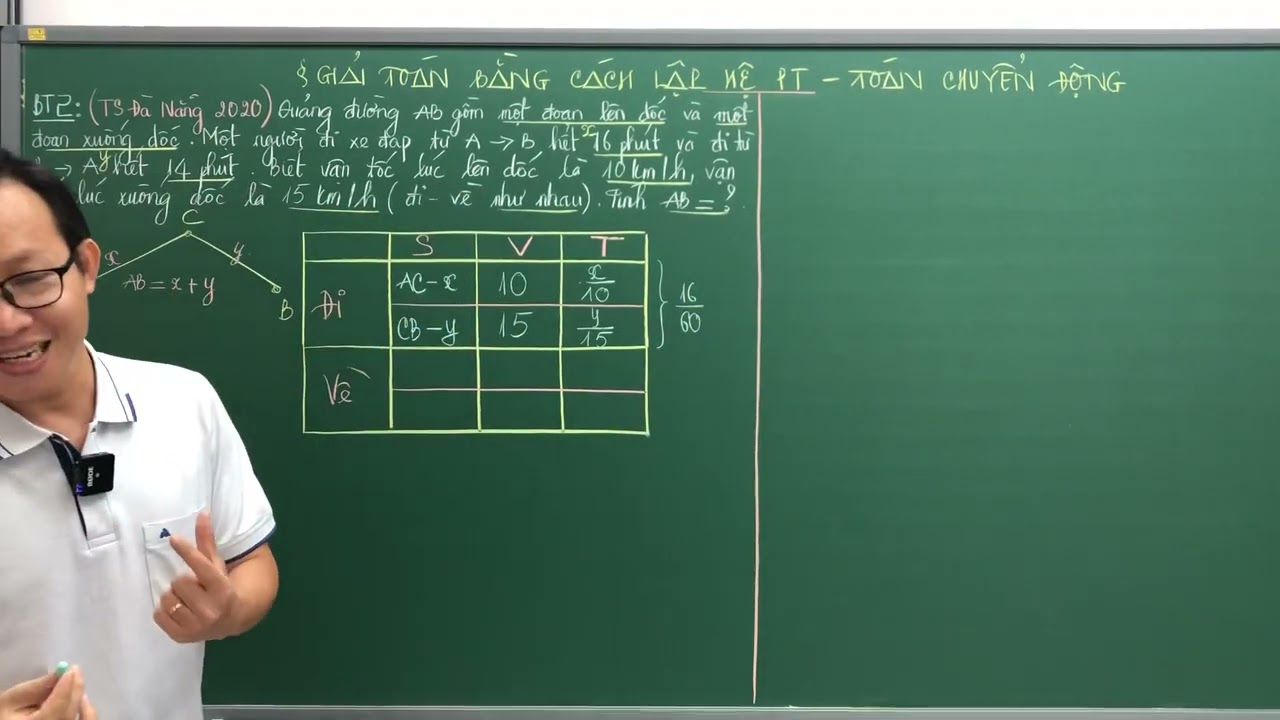 § GIẢI TOÁN BẰNG CÁCH LẬP HỆ PT – TOÁN CHUYỂN ĐỘNG
BT2: (TS Đà Nẵng 2020) Quảng đường AB gồm một đoạn lên dốc và một
đoạn xuống dốc. Một người đi xe đạp từ A → B hết 16 phút và đi từ
x
y
→ A hết 14 phút. Biết vận tốc lúc lên dốc là 10 km/h, vận
lúc xuống dốc là 15 km/h (đi - về như nhau). Tính AB = ?
C
x
y
AB = x + y
B
S V T
Đi
AC – x 10 x/10
CB – y 15 y/15
16/60
Về
RODE